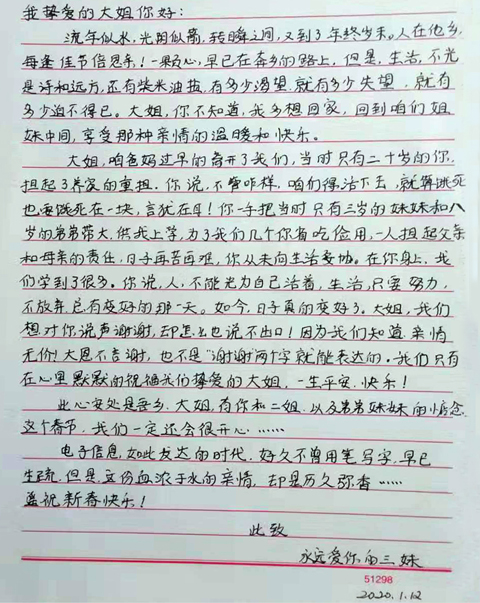 我挚爱的大姐你好:
流年似水,光阴似箭,转瞬之间,又到了年终岁末。人在他乡,
每逢佳节倍思亲!一颗心,早已在奔乡的路上,但是,生活,不光
是诗和远方,还有柴米油盐,有多少渴望,就有多少失望,就有
多少迫不得已。大姐,你不知道,我多想回家,回到咱们姐
妹中间,享受那种亲情的温暖和快乐。
大姐,咱爸妈过早的离开了我们,当时只有二十岁的你,
担起了养家的重担,你说,不管咋样,咱们得活下去,就算饿死
也要饿死在一块,言犹在耳!你一手把当时只有三岁的妹妹和八
岁的弟弟带大,供我上学,为了我们几个你省吃俭用,一人担起父亲
和母亲的责任,日子再苦再难,你从未向生活妥协。在你身上,我
们学到了很多。你说,人,不能光为自己活着,生活,只要努力,
不放弃,总有变好的那一天。如今,日子真的变好了。大姐,我们
想对你说声谢谢,却怎么也说不出口!因为我们知道,亲情
无价!大恩不言谢,也不是“谢谢”两个字就能表达的。我们只有
在心里默默的祝福我们挚爱的大姐,一生平安,快乐!
此心安处是吾乡,大姐,有你和二姐,以及弟弟妹妹的
这个春节,我们一定还会很开心……
电子信息,如此发达的时代,好久不曾用笔写字,早已
生疏,但是,这份血浓于水的亲情,却是历久弥香……
祝新春快乐!
此致
永远爱你的三妹
51298
2020.1.12